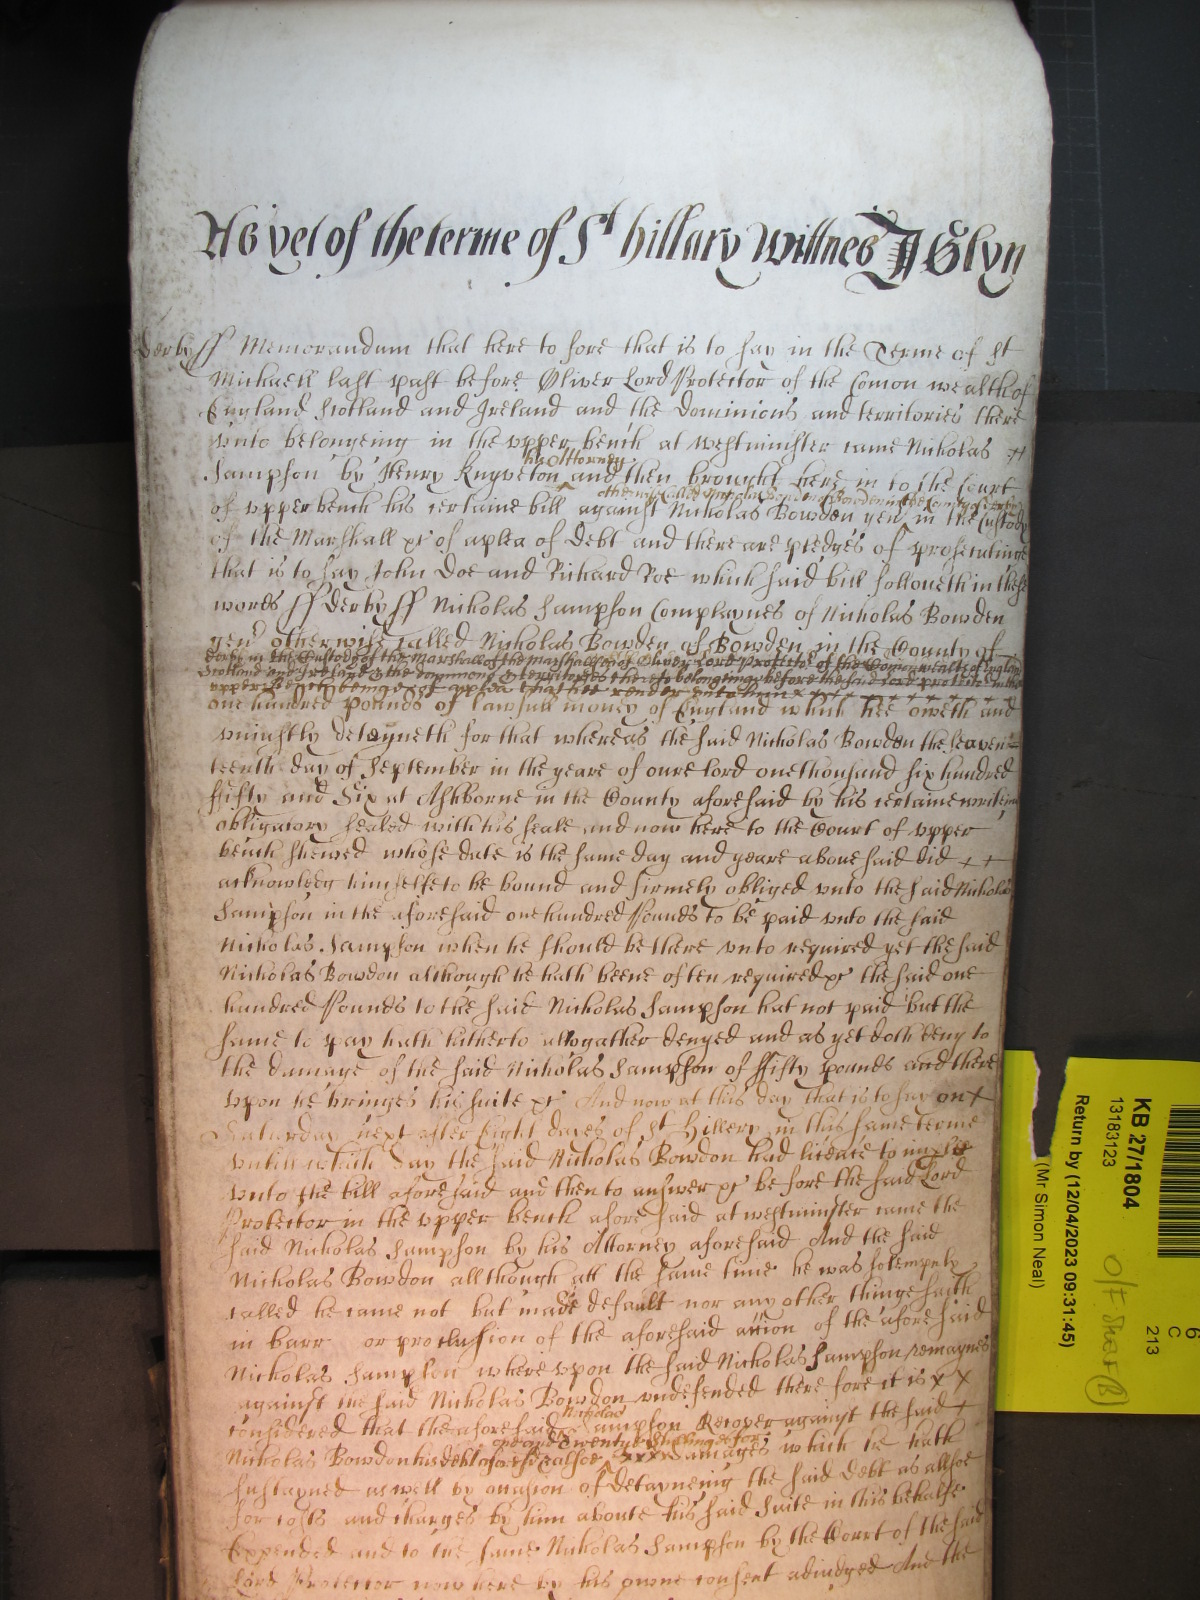 As yet of the terme of St hillary Wittnes J Glyn
Derby ss Memorandum that here to fore that is to say in the Terme of St
Michaell last past before Oliver Lord Protector of the Comon wealth of
England Scotland and Ireland and the Dominions and territories there
vnto belongeing in the vpper bench at westminster came Nicholas
his Attorney
Sampson by Henry Knyveton and then brought here in to the Court
otherwise called Nicholas Bowden of Bowden in the County of Derby
of vpper bench his certaine bill against Nicholas Bowden gen in the Custody
of the Marshall &c of a plea of Debt and there are pledges of prosecutinge
that is to say John Doe and Richard Roe which said bill followeth in these
words ss Derby ss Nicholas Sampson Complaynes of Nicholas Bowden
gen otherwise called Nicholas Bowden of Bowden in the County of
Derby in the Custody of the Marshall of the Marshallsey of Oliver Lord Protector of the Comonwealth of England
Scotland and Ireland & the dominions & territories thereto belonginge before the said Lord Protector in the
vpper Bench being of a plea that hee render vnto him
one hundred pounds of lawfull money of England which hee oweth and
vniustly detayneth for that whereas the said Nicholas Bowden the seaven=
teenth day of September in the yeare of oure lord one thousand six hundred
fifty and Six at Ashborne in the County aforesaid by his certaine writeing
obligatory sealed with his seale and now here to the Court of vpper
bench shewed whose date is the same day and yeare aboue said did
acknowledg himselfe to be bound and firmely obliged vnto the said Nicholas
Sampson in the aforesaid one hundred Pounds to be paid vnto the said
Nicholas Sampson when he should be there vnto required yet the said
Nicholas Bowdon although he hath beene often required &c the said one
hundred Pounds to the said Nicholas Sampson hat not paid but the
same to pay hath hitherto altogather denyed and as yet doth deny to
the damage of the said Nicholas Sampson of ffifty pounds and there
vpon he bringes his suite &c And now at this day that is to say on
Saturday next after Eight dayes of St Hillery in this same terme
vntill which day the said Nicholas Bowdon had licence to imparle
vnto the bill aforesaid and then to answer &c be fore the said Lord
Protector in the vpper bench afore said at westminster came the
said Nicholas Sampson by his Attorney aforesaid And the said
Nicholas Bowdon allthough att the same time he was solempnly
called he came not but made default nor any other thinge saith
in barr or preclusion of the aforesaid action of the afore said
Nicholas Sampson where vpon the said Nicholas Sampson remaynes
against the said Nicholas Bowdon vndefended there fore it is
Nicholas
considered that the aforesaid Sampson Recover against the said
Nicholas Bowdon his debt aforesd & alsoe damages which he hath
sustayned as well by occasion of detayneing the said Debt as allsoe
for costs and charges by him aboute his said suite in this behalfe
Expended and to the same Nicholas Sampson by the Court of the said
Lord Protector now here by his owne consent adiudged And the
KB 27/1804
13183123
Return by (12/04/2023 09:31:45)
(Mr Simon Neal)
6
C
213